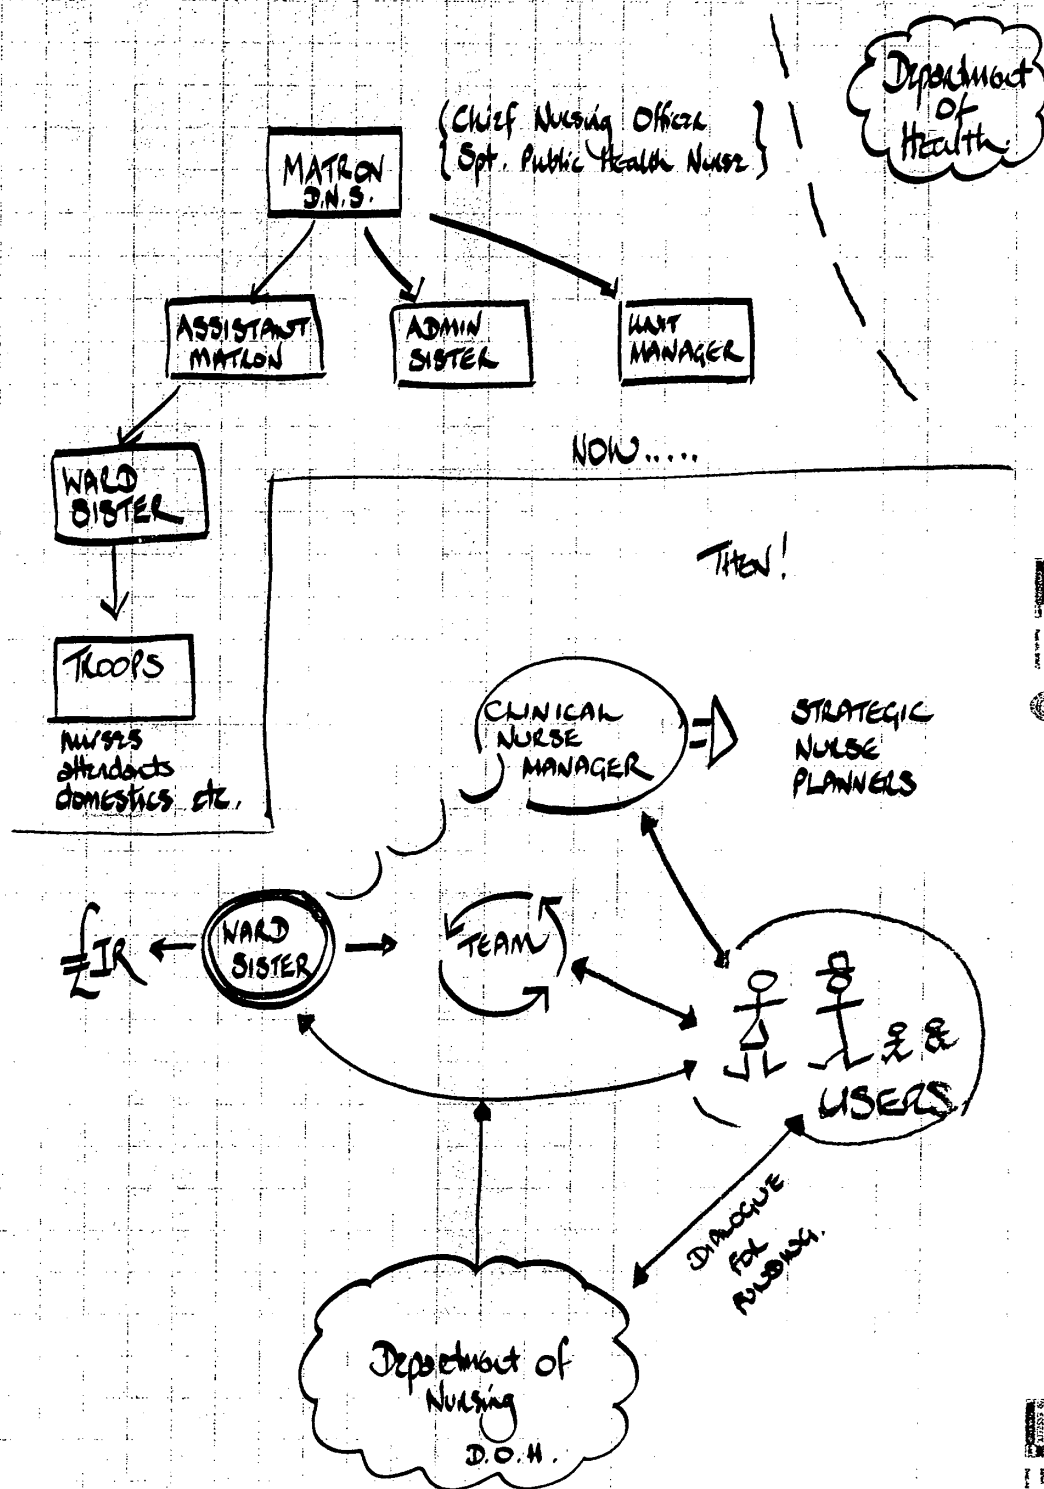 Department
Of
Health.
Chief Nursing Officer
Spt. Public Health Nurse
MATRON
D.N.S.
ASSISTANT
MATRON
ADMIN
SISTER
UNIT
MANAGER
NOW.....
WARD
SISTER
THEN!
TROOPS
nurses
attendants
domestics etc.
CLINICAL
NURSE
MANAGER
STRATEGIC
NURSE
PLANNERS
£IR
WARD
SISTER
TEAM
USERS.
DIALOGUE
FOR
FUNDING.
Department of
Nursing
D.O.H.